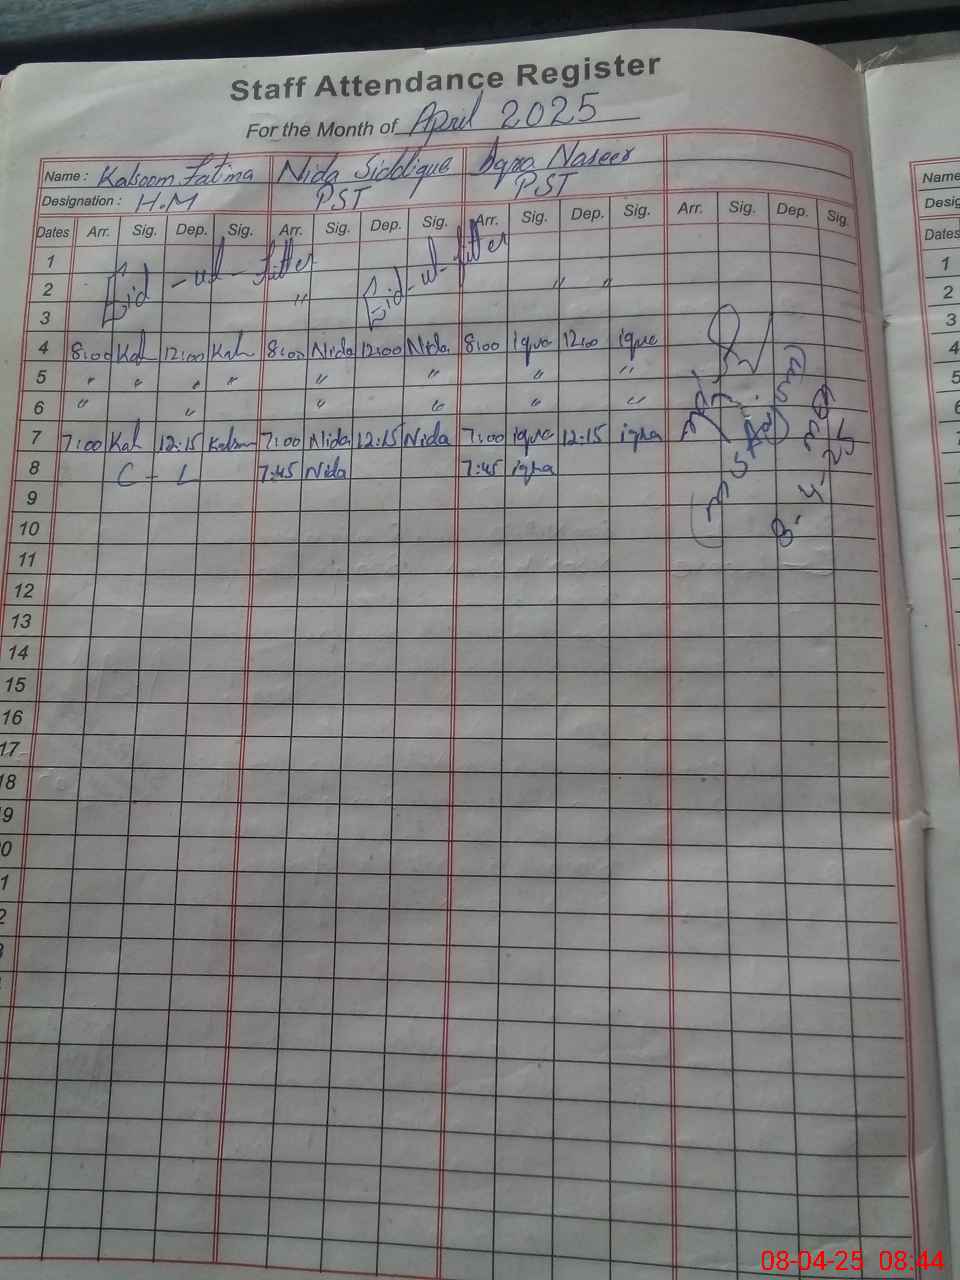 Staff Attendance Register
For the Month of April 2025
Name : Kalsoom Fatima Nida Siddique Iqra Naseer
Designation : H.M PST PST
Dates Arr. Sig. Dep. Sig. Arr. Sig. Dep. Sig. Arr. Sig. Dep. Sig. Arr. Sig. Dep. Sig.
1
2 Eid-ul-fitter " Eid-ul-fitter " "
3
4 8:00 Kal 12:00 Kal 8:00 Nida 12:00 Nida 8:00 iqra 12:00 iqra
5 " " " " " " " "
6 " " " " " "
7 7:00 Kal 12:15 Kalsoom 7:00 Nida 12:15 Nida 7:00 iqra 12:15 iqra
8 C - L 7:45 Nida 7:45 iqra
9
10
11
12
13
14
15
16
17
18
19
0
1
2
8-4-25
Name
Desig
Dates
1
2
3
4
5
6
7
8
9
10
11
12
08-04-25 08:44